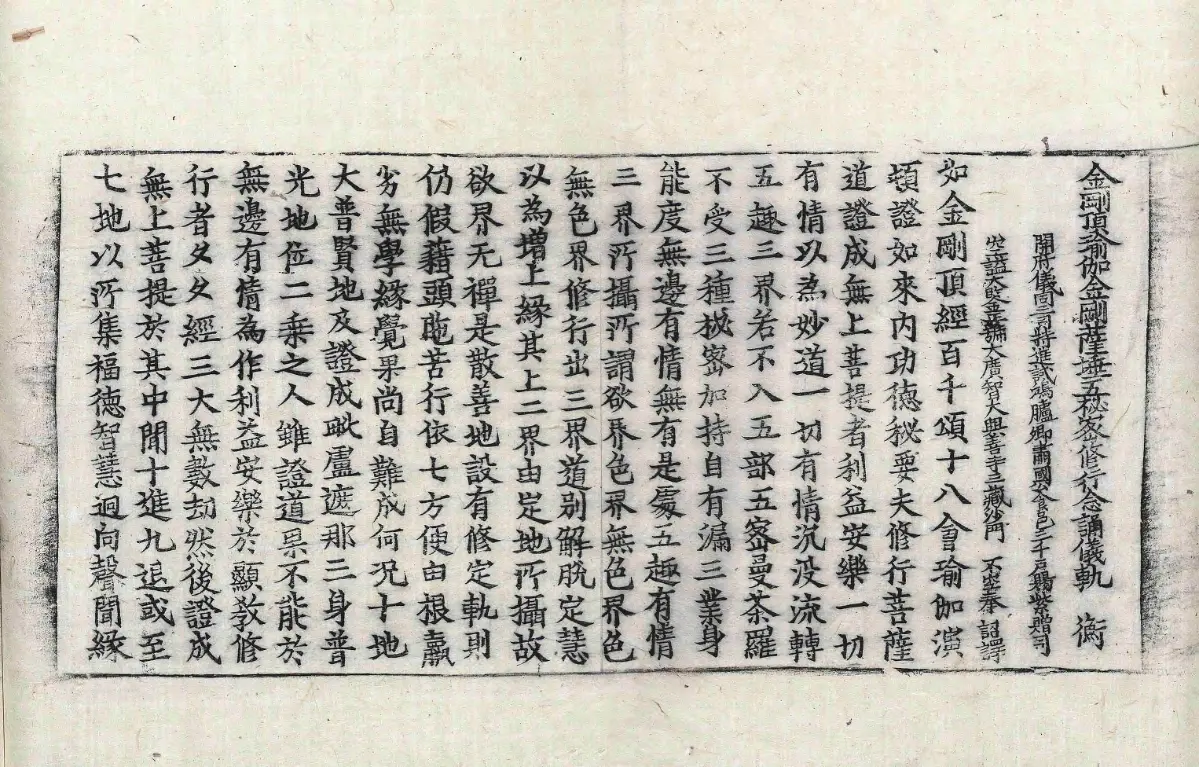 金剛頂瑜伽金剛薩埵五秘密修行念誦儀軌 衡
開府儀同三司特進試鴻臚卿肅國公食邑三千戶賜紫贈司
空諡大鑒正號大廣智大興善寺三藏沙門 不空奉 詔譯
如金剛頂經百千頌十八會瑜伽演
頓證如來內功德秘要夫修行菩薩
道證成無上菩提者利益安樂一切
有情以為妙道一切有情沉没流轉
五趣三界若不入五部五密曼荼羅
不受三種秘密加持自有漏三業身
能度無邊有情無有是處五趣有情
三界所攝所謂欲界色界無色界色
無色界修行出三界道別解脫定慧
以為增上緣其上二界由定地所攝故
欲界无禪是散善地設有修定軌則
仍假藉頭陁苦行依七方便由根羸
劣無學緣覺果尚自難成何況十地
大普賢地及證成毗盧遮那三身普
光地位二乘之人雖證道果不能於
無邊有情為作利益安樂於顯教修
行者久久經三大無數劫然後證成
無上菩提於其中間十進九退或至
七地以所集福德智慧迴向聲聞緣